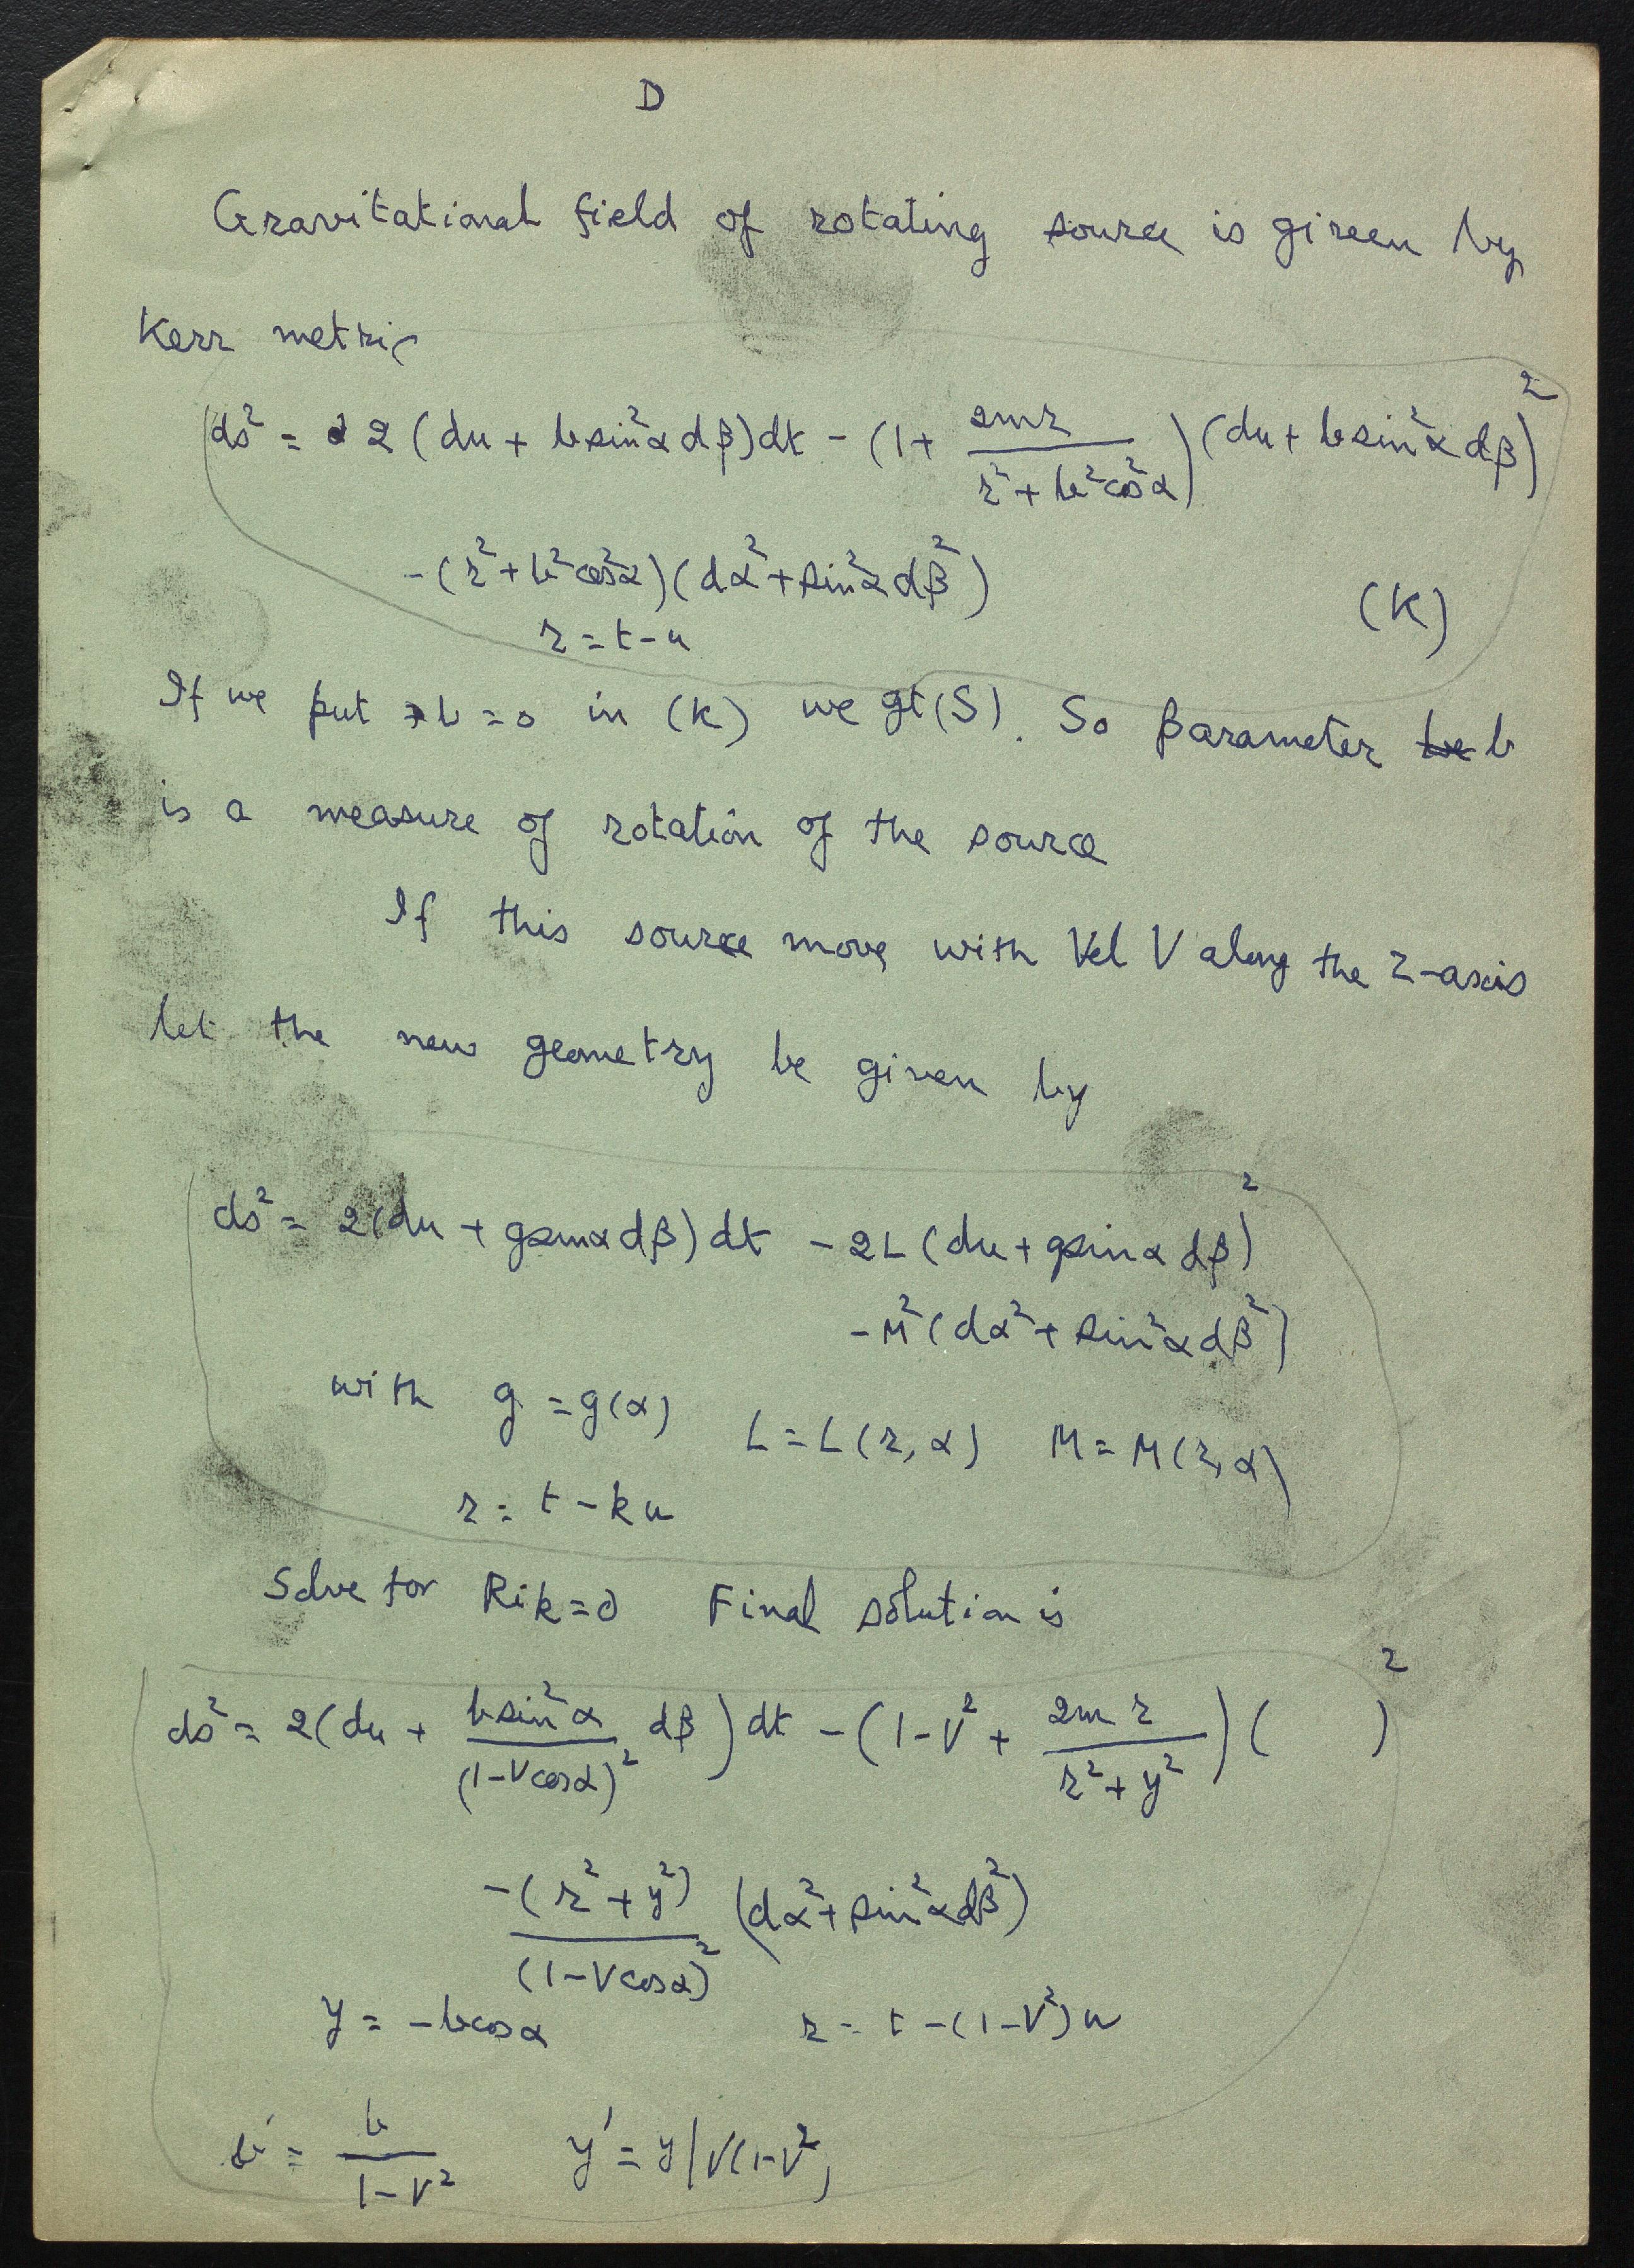 D
Gravitational field of rotating source is given by
Kerr metric
ds² = 2 (du + b sin²α dβ) dt - (1 + 2mr / (r² + b² cos²α)) (du + b sin²α dβ)²
-(r² + b² cos²α)(dα² + sin²α dβ²)
r = t - u (K)
If we put b = 0 in (K) we gt (S). So parameter b
is a measure of rotation of the source
If this source move with Vel V along the Z-axis
let the new geometry be given by
ds² = 2(du + g sinα dβ) dt - 2L (du + g sinα dβ)²
- M² (dα² + sin²α dβ²)
with g = g(α) L = L(r, α) M = M(r, α)
r = t - ku
Solve for Rik = 0 Final solution is
ds² = 2(du + b sin²α / (1 - V cosα)² dβ) dt - (1 - V² + 2mr / (r² + y²)) ( )²
-(r² + y²) / (1 - V cosα)² (dα² + sin²α dβ²)
y = -b cosα r = t - (1 - V²)u
b' = b / 1 - V² y' = y | V(1 - V²)